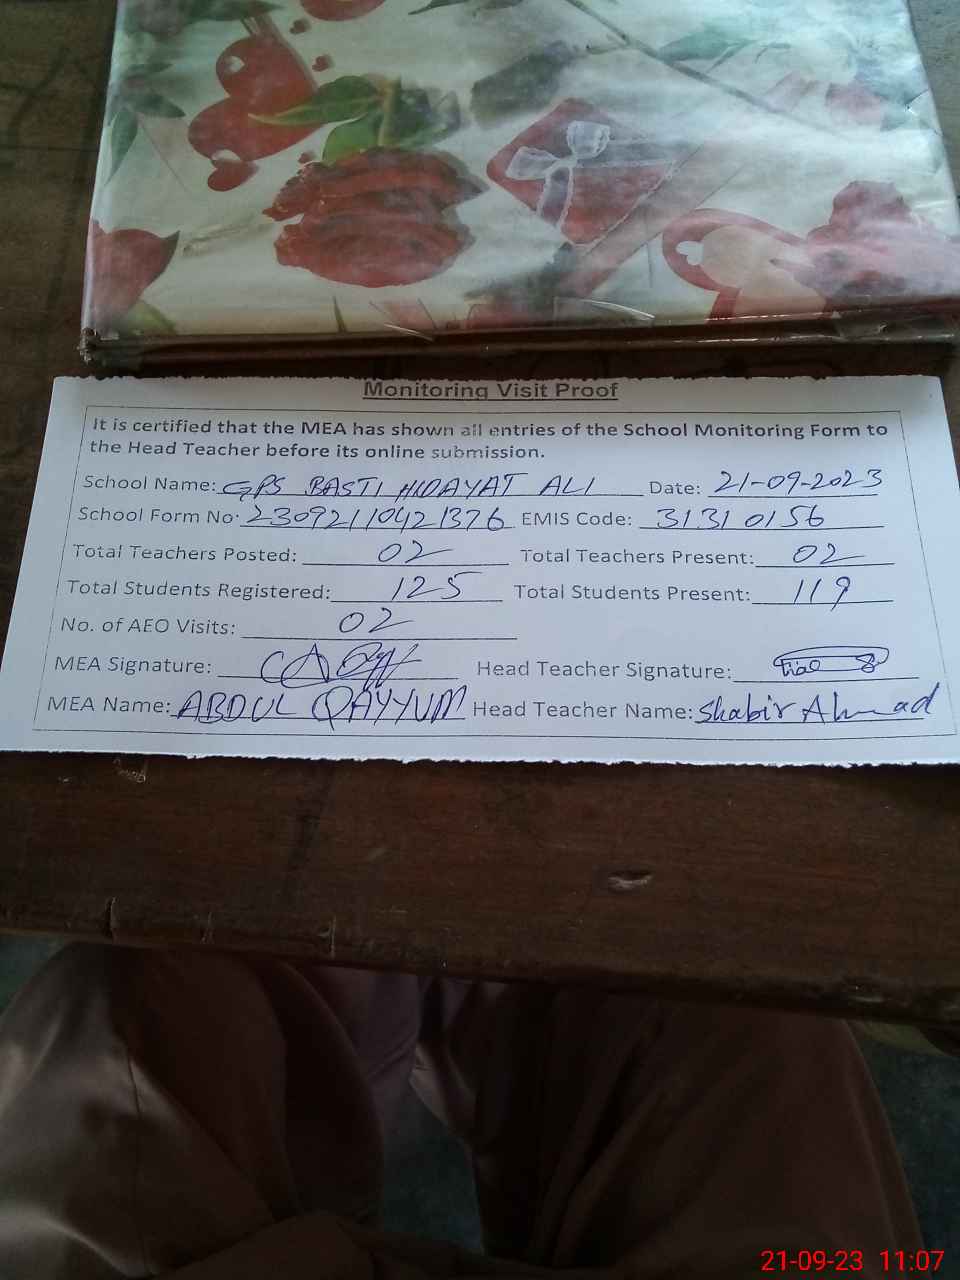 Monitoring Visit Proof
It is certified that the MEA has shown all entries of the School Monitoring Form to
the Head Teacher before its online submission.
School Name: GPS BASTI HIDAYAT ALI Date: 21-09-2023
School Form No: 23092110421376 EMIS Code: 31310156
Total Teachers Posted: 02 Total Teachers Present: 02
Total Students Registered: 125 Total Students Present: 119
No. of AEO Visits: 02
MEA Signature: Head Teacher Signature:
MEA Name: ABDUL QAYYUM Head Teacher Name: Shabir Ahmad
21-09-23 11:07